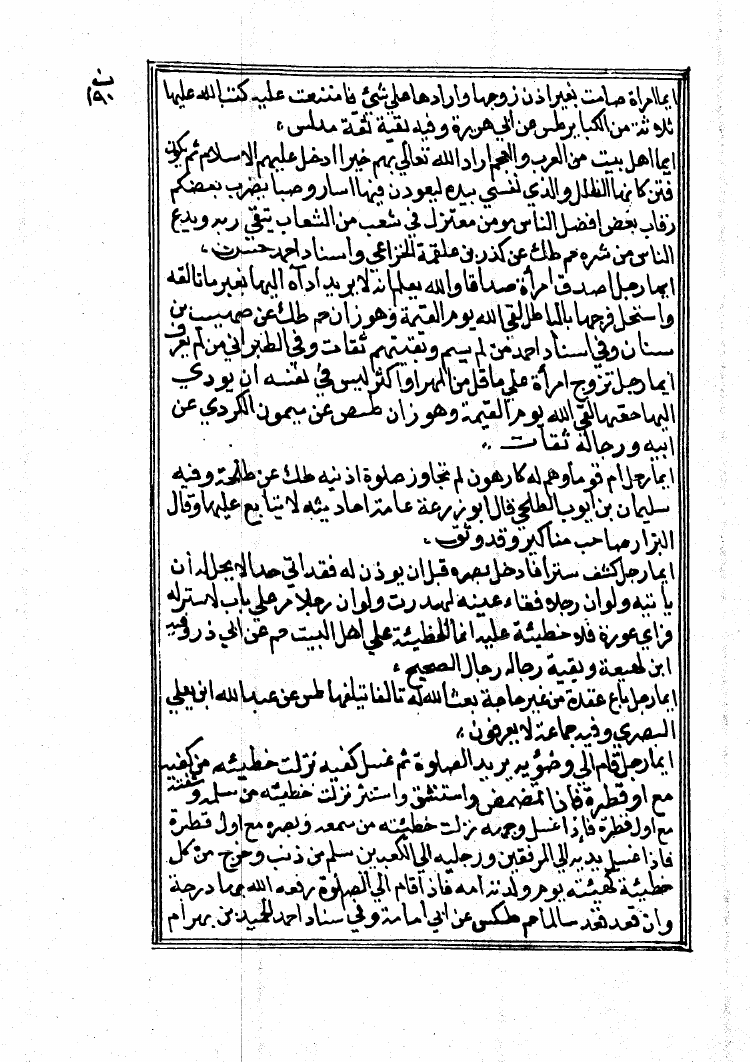 ث
١٩٠
ايما امراة صامت بغير اذن زوجها وارادها علي شئ فامتنعت عليه كتب الله عليها
ثلاثة من الكبا برطس عن ابي هريرة وفيه بقية ثقة مدلس
ايما اهل بيت من العرب والعجم اراد الله تعالي بهم خيرا ادخل عليهم الاسلام ثم يكون
فتن كانها الظلل والذي نفسي بيده ليعودن فيها اسا وصبا يضرب بعضكم
رقاب بعض افضل الناس مومن معتزل في شعب من الشعاب يتقي ربه ويدع
الناس من شره حم طك عن كرز بن علقمة الخزاعي واسناد احمد حسن
ايما رجل اصدق امرأة صداقا والله يعلم انه لا يريد أدآه اليها فغرها تالله
واستحل فرجها بالباطل لقي الله يوم القيمة وهو زان حم طك عن صهيب بن
سنان وفي اسناد احمد من لم يسم وبقيتهم ثقات وفي الطبراني من لم يعرف
ايما رجل تزوج امرأة علي ما قل من المهر أو اكثر ليس في نفسه ان يودي
اليها حقها لقي الله يوم القيمة وهو زان طسص عن ميمون الكردي عن
ابيه ورجاله ثقات
ايما رجل ام قوما وهم له كارهون لم تجاوز صلوة اذنيه طك عن طلحة وفيه
سليمان بن ايوب الطلحي قال ابو زرعة عامة احاديثه لا يتابع عليها وقال
البزار صاحب مناكير وقد وثق
ايما رجل كشف سترا فادخل بصره قبل ان يوذن له فقد اتي حدا لا يحل له أن
يأتيه ولو ان رجلا فقاء عينه لهدرت ولو ان رجلا مر علي باب لا ستر له
فراي عورة فلا خطيئة عليه انما الخطيئة علي اهل البيت حم عن ابي ذر وفيه
ابن لهيعة وبقية رجاله رجال الصحيح
ايما رجل باع عقدة من غير حاجة بعث الله له تالفا يتلفها طس عن عبد الله ابن يعلي
البصري وفيه جماعة لا يعرفون
ايما رجل قام الي وضوئه يريد الصلوة ثم غسل كفيه نزلت خطيئته من كفيه
مع اول قطرة فاذا تمضمض واستنشق واستنثر نزلت خطيئته من لسانه وشفتيه
مع اول قطرة فاذا غسل وجهه نزلت خطيئته من سمعه وبصره مع اول قطرة
فاذا غسل يديه الي المرفقين ورجليه الي الكعبين سلم من ذنب وخرج من كل
خطيئة كهيئته يوم ولدته امه فاذا قام الي الصلوة رفعه الله بها درجة
وان قعد قعد سالما حم طكس عن ابي امامة وفي سناد احمد الحميد بن بهرام